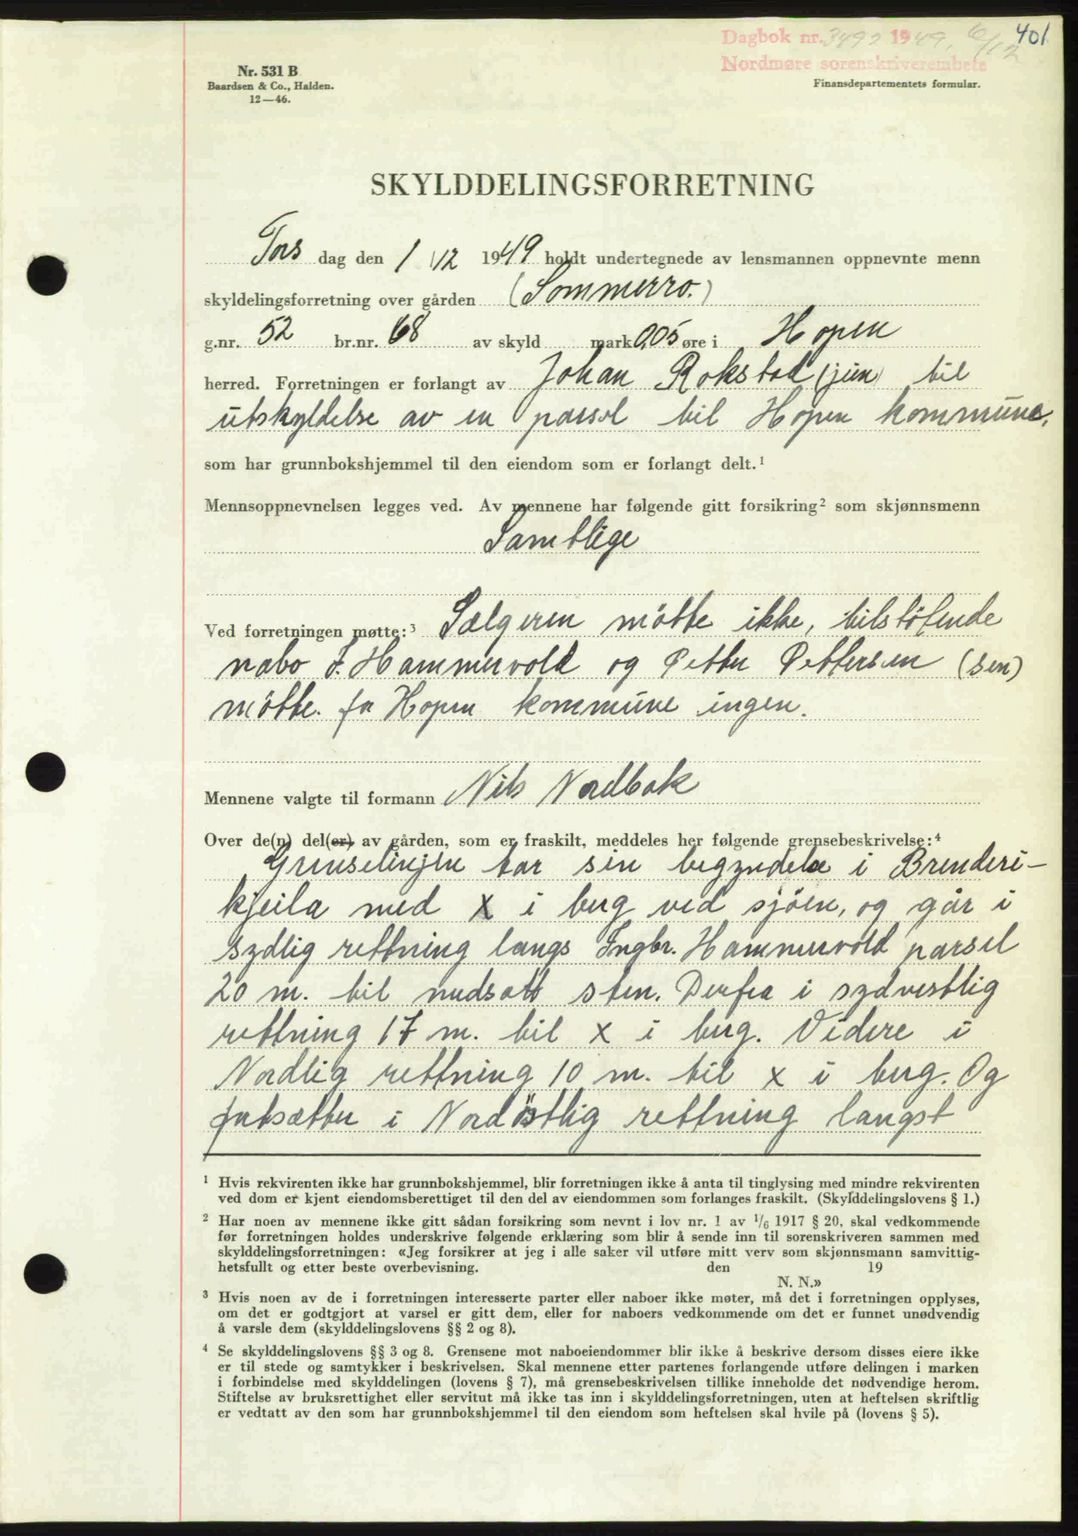 Dagbok nr. 3492 1949, 6/12 401
Nordmøre sorenskriverembete
Nr. 531 B
Baardsen & Co., Halden.
12—46.
Finansdepartementets formular.
SKYLDDELINGSFORRETNING
Tors dag den 1/12 1949 holdt undertegnede av lensmannen oppnevnte menn
skyldelingsforretning over gården (Sommerro.)
g.nr. 52 br.nr. 68 av skyld mark 0,05 øre i Hopen
herred. Forretningen er forlangt av Johan Rokstad (jun) til
utskyldelse av en parsel til Hopen kommune,
som har grunnbokshjemmel til den eiendom som er forlangt delt.¹
Mennsoppnevnelsen legges ved. Av mennene har følgende gitt forsikring² som skjønnsmenn
Samtlige
Ved forretningen møtte:³ Sælgeren møtte ikke, tilstøtende
nabo I. Hammervold og Petter Pettersen (sen)
møtte. for Hopen kommune ingen.
Mennene valgte til formann Nils Nordbak
Over de(n) del(er) av gården, som er fraskilt, meddeles her følgende grensebeskrivelse:⁴
Grenselinjen tar sin begyndelse i Brenderi-
kjeila med x i berg ved sjøen, og går i
sydlig rettning langs Ingbr. Hammervold parsel
20 m. til nedsatt sten. Derfra i sydvestlig
rettning 17 m. til x i berg. Videre i
Nordlig rettning 10 m. til x i berg. Og
fortsætter i Nordöstlig rettning langst
¹ Hvis rekvirenten ikke har grunnbokshjemmel, blir forretningen ikke å anta til tinglysing med mindre rekvirenten
ved dom er kjent eiendomsberettiget til den del av eiendommen som forlanges fraskilt. (Skylddelingslovens § 1.)
² Har noen av mennene ikke gitt sådan forsikring som nevnt i lov nr. 1 av 1/6 1917 § 20, skal vedkommende
før forretningen holdes underskrive følgende erklæring som blir å sende inn til sorenskriveren sammen med
skylddelingsforretningen: «Jeg forsikrer at jeg i alle saker vil utføre mitt verv som skjønnsmann samvittig-
hetsfullt og etter beste overbevisning. den 19
N. N.»
³ Hvis noen av de i forretningen interesserte parter eller naboer ikke møter, må det i forretningen opplyses,
om det er godtgjort at varsel er gitt dem, eller for naboers vedkommende om det er funnet unødvendig
å varsle dem (skylddelingslovens §§ 2 og 8).
⁴ Se skylddelingslovens §§ 3 og 8. Grensene mot naboeiendommer blir ikke å beskrive dersom disses eiere ikke
er til stede og samtykker i beskrivelsen. Skal mennene etter partenes forlangende utføre delingen i marken
i forbindelse med skylddelingen (lovens § 7), må grensebeskrivelsen tillike inneholde det nødvendige herom.
Stiftelse av bruksrettighet eller servitut må ikke tas inn i skylddelingsforretningen, uten at heftelsen skriftlig
er vedtatt av den som har grunnbokshjemmel til den eiendom som heftelsen skal hvile på (lovens § 5).